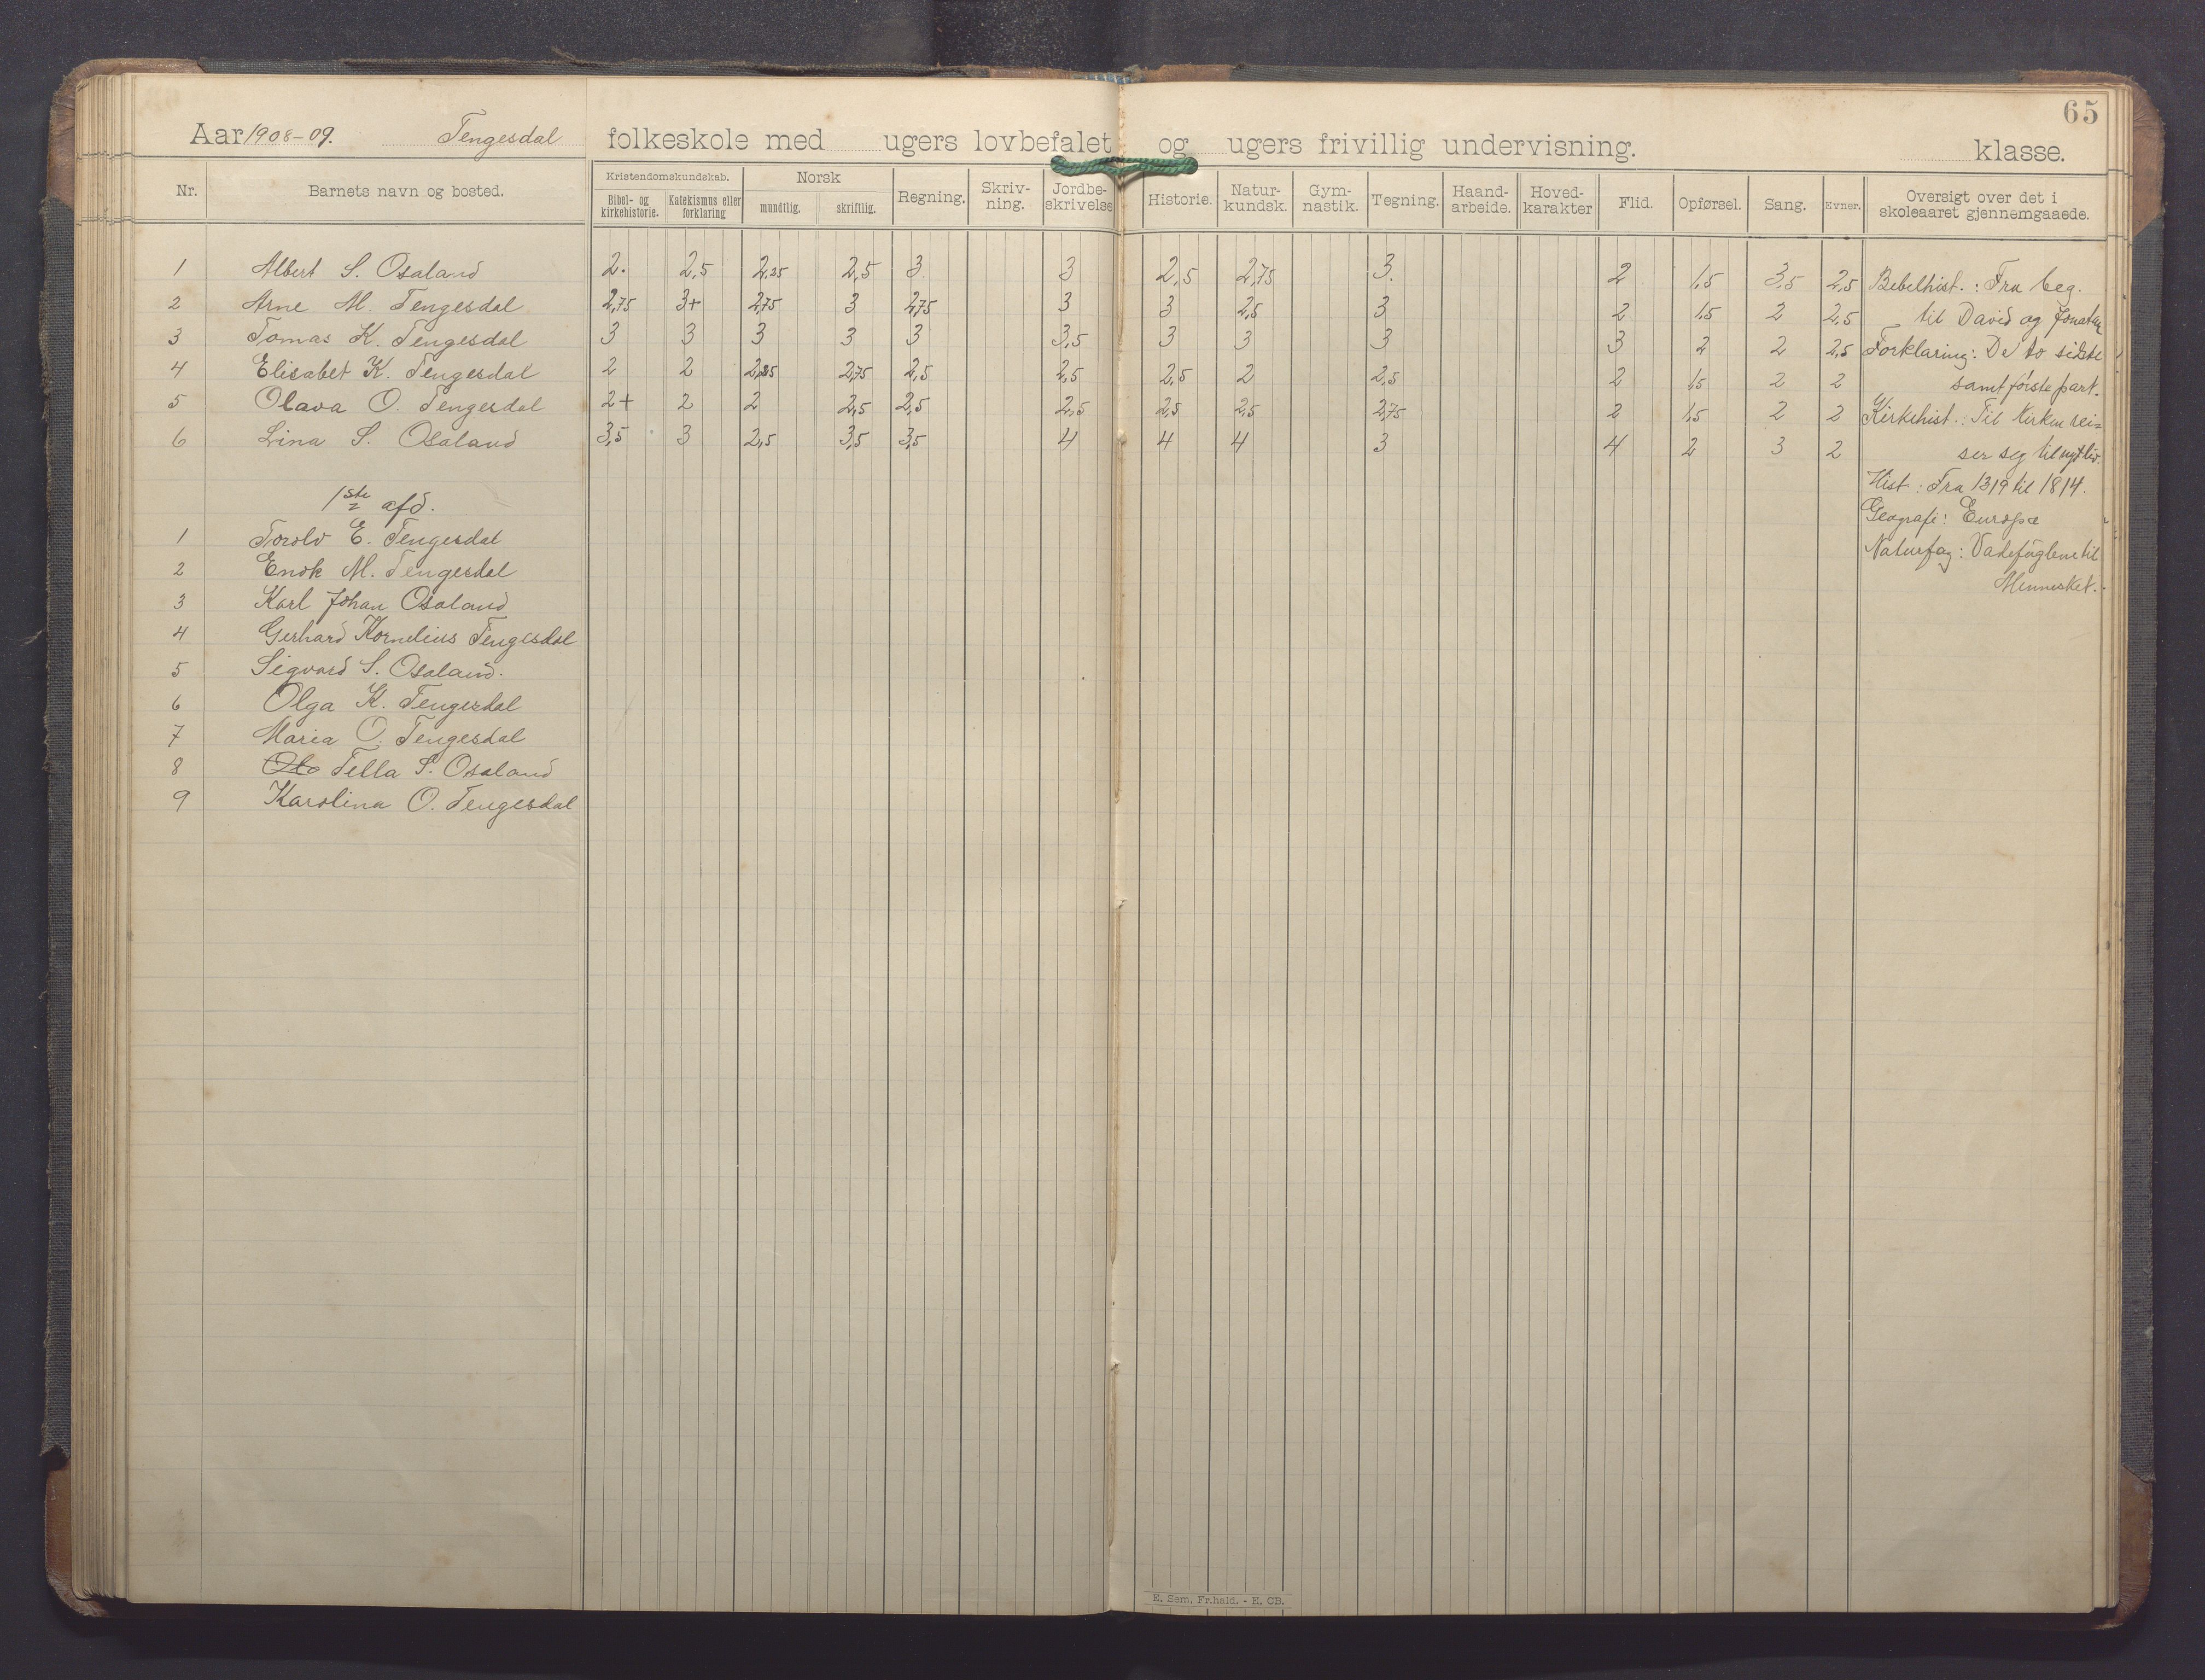 65
Aar 1908-09. Tengesdal folkeskole med ugers lovbefalet og ugers frivillig undervisning. klasse.
Nr. Barnets navn og bosted. Kristendomskundskab. Bibel- og kirkehistorie. Katekismus eller forklaring Norsk mundtlig. skriftlig. Regning. Skriv-ning. Jordbe-skrivelse Historie. Natur-kundsk. Gym-nastik. Tegning. Haand-arbeide. Hoved-karakter Flid. Opførsel. Sang. Evner. Oversigt over det i skoleaaret gjennemgaaede.
1 Albert S. Osaland 2. 2,5 2,25 2,5 3 3 2,5 2,75 3. 2 1,5 3,5 2,5 Bibelhist.: Fra beg.
2 Arne M. Tengesdal 2,75 3+ 2,75 3 2,75 3 3 2,5 3 2 1,5 2 2,5 til David og Jonatan
3 Tomas K. Tengesdal 3 3 3 3 3 3,5 3 3 3 3 2 2 2,5 Forklaring: De to sidste
4 Elisabet K. Tengesdal 2 2 2,25 2,75 2,5 2,5 2,5 2 2,5 2 1,5 2 2 samt første part.
5 Olava O. Tengesdal 2+ 2 2 2,5 2,5 2,5 2,5 2,5 2,75 2 1,5 2 2 Kirkehist.: Til Kirken rei=
6 Lina S. Osaland 3,5 3 2,5 3,5 3,5 4 4 4 3 4 2 3 2 ser seg til nyt liv.
Hist.: Fra 1319 til 1814.
1ste afd.
Geografi: Europa
1 Torolv E. Tengesdal
Naturfag: Vadefuglene til
2 Endk M. Tengesdal
Mennesket.
3 Karl Johan Osaland
4 Gerhard Kornelius Tengesdal
5 Sigvard S. Osaland.
6 Olga K. Tengesdal
7 Maria O. Tengesdal
8 Ola Tella S. Osaland
9 Karolina O. Tengesdal
E. Sem, Fr.hald. - E. CB.